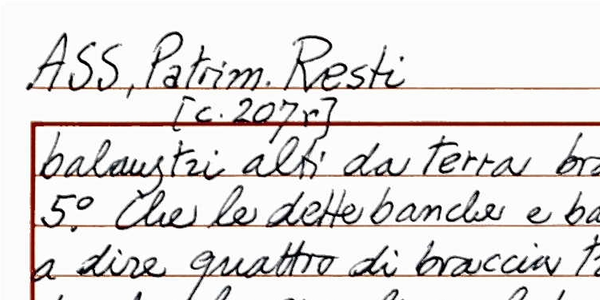 ASS, Patrim. Resti
[c. 207r]
balaustri alti da terra
5° Che le dette banche e
a dire quattro di braccia